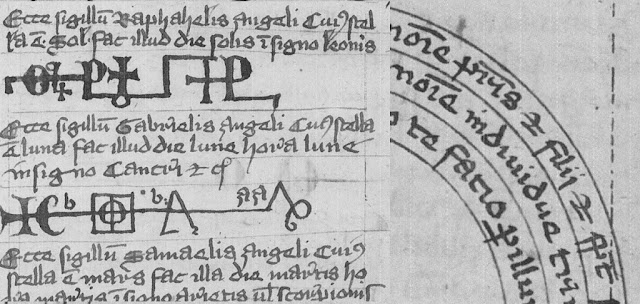 Ecce sigillū Raphahelis Angeli Cuiꝰ stel
la ē Sol. fac illud die solis ī signo leonis
Ecce sigillū Gabrielis Angeli Cuiꝰ stella
ē luna fac illud die lune hora lune
in signo Cancri
b b aa
Ecce sigillū Samaelis Angeli Cuiꝰ
stella ē mars fac illa die martis ho
ra martis ī signo arietis ul scorpionis
noīe pris & filij &
noīe indiuidue tri
te facio p illum